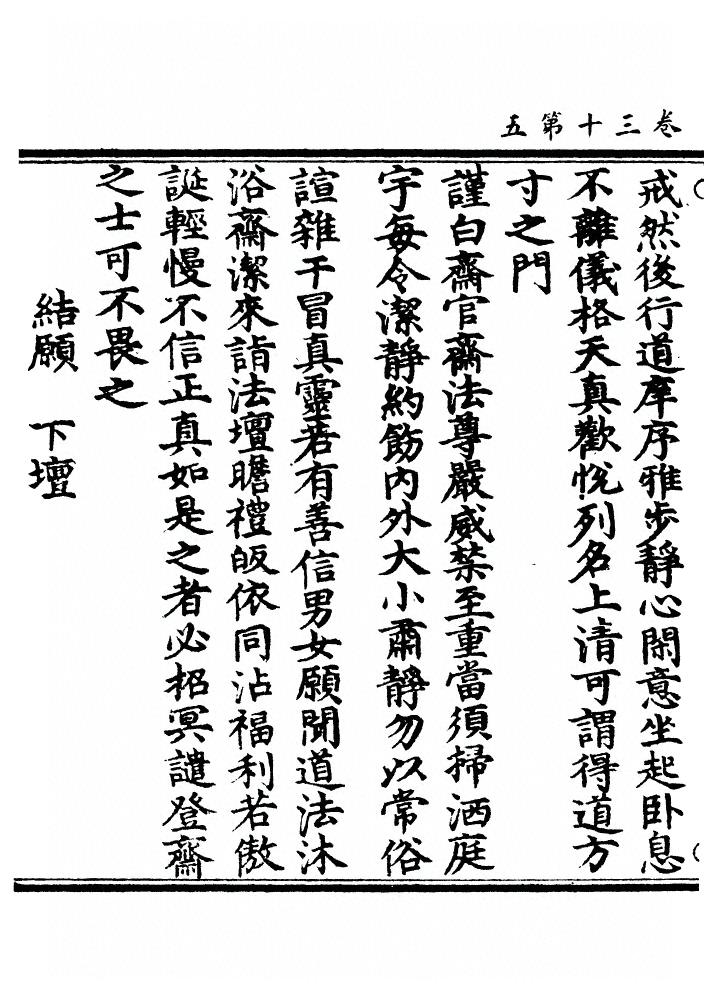 卷三十第五
戒然後行道庠序雅步靜心閑意坐起卧息
不離儀格天真歡悅列名上清可謂得道方
寸之門
謹白齋官齋法尊嚴威禁至重當須掃洒庭
宇每令潔靜約飭內外大小肅靜勿以常俗
諠雜干冒真靈若有善信男女願聞道法沐
浴齋潔來詣法壇瞻禮皈依同沾福利若傲
誕輕慢不信正真如是之者必招冥譴登齋
之士可不畏之
結願 下壇